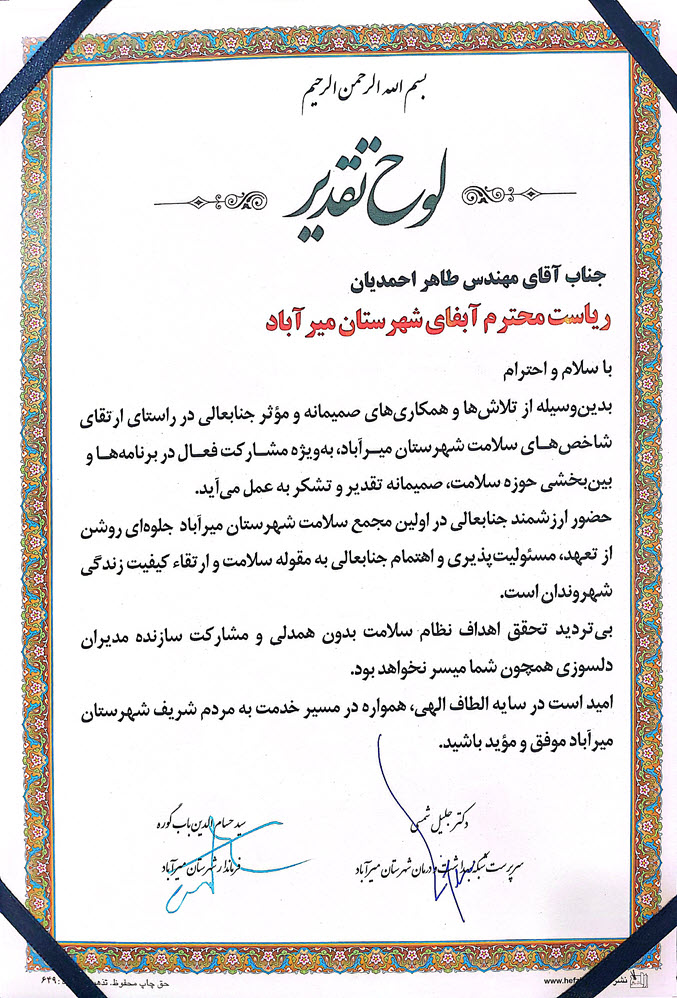 بسم الله الرحمن الرحیم
لوح تقدیر
جناب آقای مهندس طاهر احمدیان
ریاست محترم آبفای شهرستان میرآباد
با سلام و احترام
بدین‌وسیله از تلاش‌ها و همکاری‌های صمیمانه و مؤثر جنابعالی در راستای ارتقای
شاخص‌های سلامت شهرستان میرآباد، به‌ویژه مشارکت فعال در برنامه‌ها و
بین‌بخشی حوزه سلامت، صمیمانه تقدیر و تشکر به عمل می‌آید.
حضور ارزشمند جنابعالی در اولین مجمع سلامت شهرستان میرآباد جلوه‌ای روشن
از تعهد، مسئولیت‌پذیری و اهتمام جنابعالی به مقوله سلامت و ارتقاء کیفیت زندگی
شهروندان است.
بی‌تردید تحقق اهداف نظام سلامت بدون همدلی و مشارکت سازنده مدیران
دلسوزی همچون شما میسر نخواهد بود.
امید است در سایه الطاف الهی، همواره در مسیر خدمت به مردم شریف شهرستان
میرآباد موفق و مؤید باشید.
دکتر جلیل شمسی
سرپرست شبکه بهداشت و درمان شهرستان میرآباد
سید حسام الدین باب گوره
فرماندار شهرستان میرآباد
نشر
www.hefz
حق چاپ محفوظ.
۶۴۹